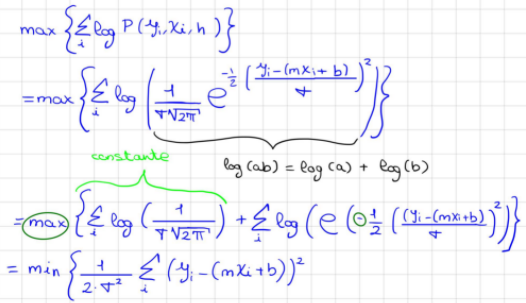 max {∑i log P(yi, xi, h)}
= max {∑i log (1/(σ√2π) e^(-1/2 ((yi-(mxi+b))/σ)²))}
constante
log(ab) = log(a) + log(b)
= max {∑i log (1/(σ√2π)) + ∑i log (e (-1/2 ((yi-(mxi+b))/σ)²))}
= min {1/(2·σ²) ∑i (yi-(mxi+b))²